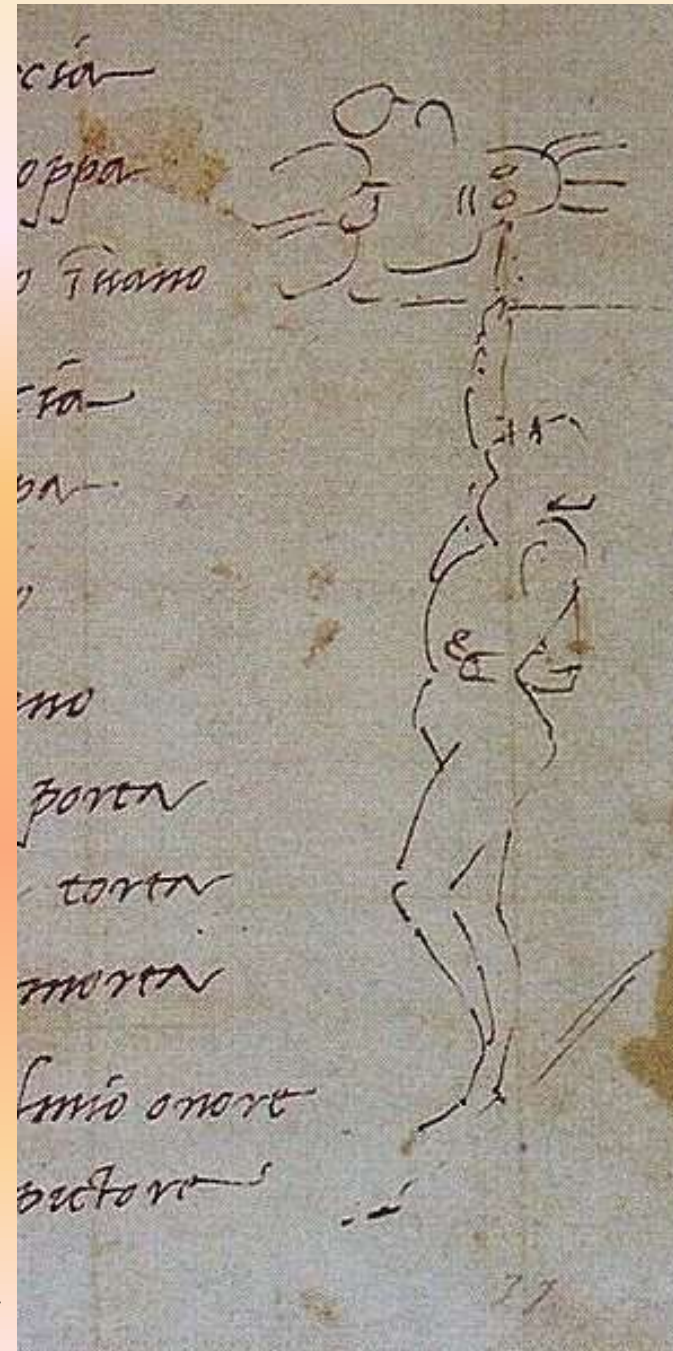 ccia
oppa
o
cia
pa
o
no
porta
torta
morta
l mio onore
pictore